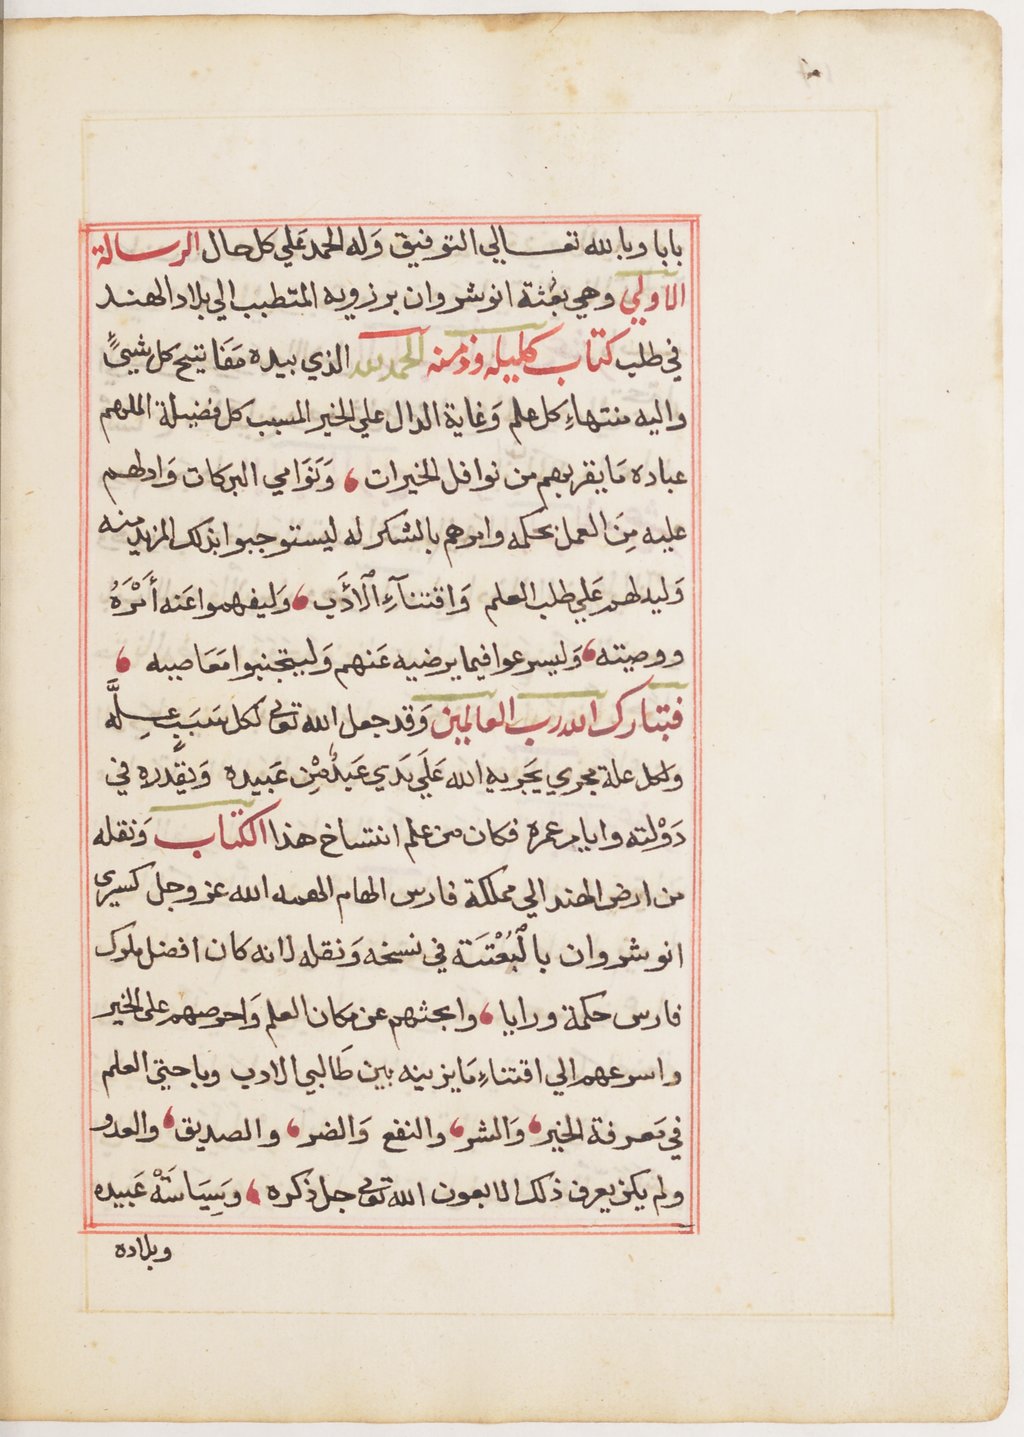 بابا وبالله تعالي التوفيق وَله الحمد عَلي كل حال الرسالة
الاولي وهي بعُثة انوشروان برزويه المتطبب الي بلاد الهند
في طلب كتاب كليله ودمنه الحمد لله الذي بيده مَفَاتيح كل شيىًٔ
واليه منتهاءِ كل علم وَغاية الدال علي الخير المسبب كل فضيلة الملهم
عباده مَا يقربهم من نوافل الخيرات ، وَنَوَامي البركات وَادلهم
عليه مِنَ العمل بحكمه وامرهم بالشكر له ليستوجبوا بذلك المزيد منه
وَليدلهم عَلي طلب العلم وَاقتنآءِ الَادَب ، وَليفهموا عَنه أَمْرَهُ
ووصيته ، وَليسرعوا فيما يرضيه عَنهم وَليتجنبوا مَعَاصيه ،
فتبارك الله رب العالمين وَقد جعل الله تعالى لكل سَبَب عِلَّه
ولكل علة مجري يَجريه الله عَلَي يَدي عَبدٌ مْن عَبيده وَيقَّدره في
دَوْلته وايام عمره فكان من علم انتساخ هذا الكتاب وَنقله
من ارض الهند الي مملكة فارس الهام الهمه الله عز وجل كسرى
انوشروان بالْبُعْثَة في نسخه وَنقله لانه كان افضل ملوك
فارس حكمة ورايا ، وابحثهم عن مكان العلم وَاحرصهم على الخير
واسرعهم الي اقتناءِ مَا يزينه بين طَالبي الادب وباحثي العلم
في مَعرفة الخير ، وَالشر ، والنفع وَالضر ، والصديق ، والعدو
ولم يكن يعرف ذلك الا بعون الله تعالى جل ذكره ، وَسِيَاسَتْه عَبيده
وبلاده